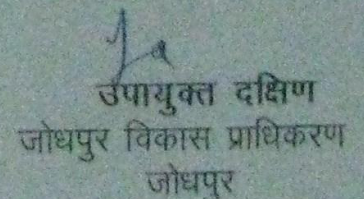 उपायुक्त दक्षिण
जोधपुर विकास प्राधिकरण
जोधपुर